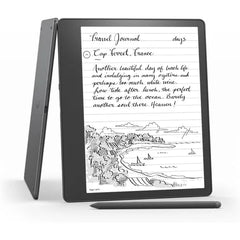 Travel Journal days
Cap Ferret, France
Another beautiful day of beach life
and indulging in many oysters and
perhaps too much white wine.
now tide after lunch, the perfect
time to go to the ocean. Honestly
another soul there. Heaven!